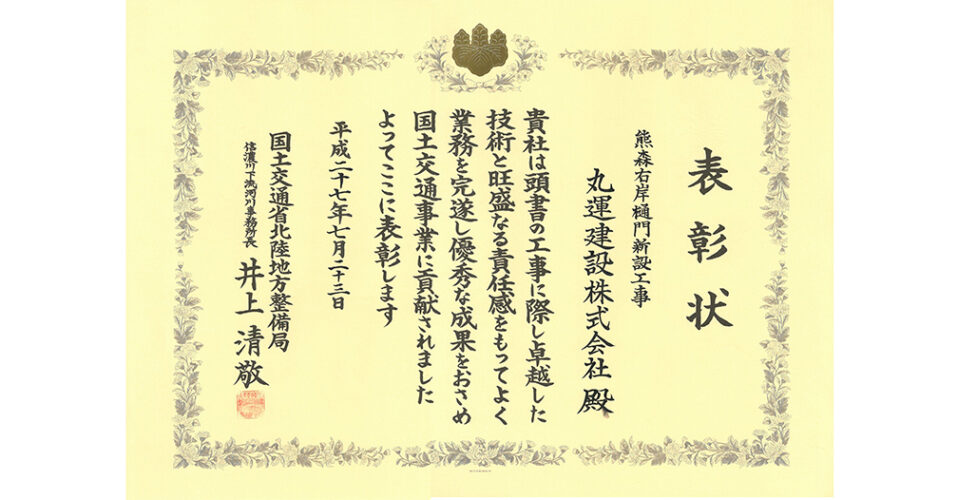 表彰状
熊森右岸樋門新設工事
丸運建設株式会社 殿
貴社は頭書の工事に際し卓越した
技術と旺盛なる責任感をもってよく
業務を完遂し優秀な成果をおさめ
国土交通事業に貢献されました
よってここに表彰します
平成二十七年七月二十三日
国土交通省北陸地方整備局
信濃川下流河川事務所長 井上清敬